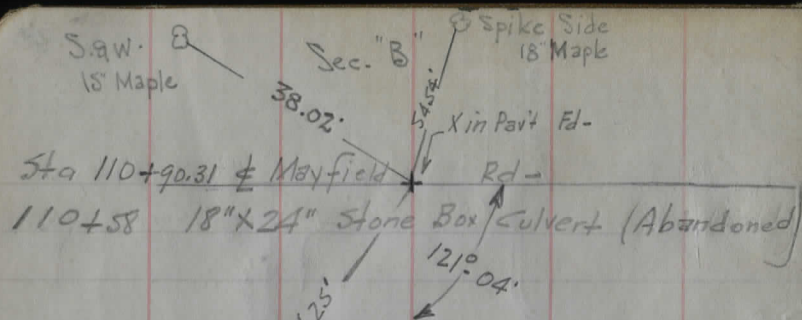 S.&W.
15" Maple
Sec. "B"
Spike Side
18" Maple
38.02'
54.54'
X in Pav't Fd-
Sta 110+90.31 ℄ Mayfield Rd-
110+58 18"X24" Stone Box Culvert (Abandoned)
121°-04'